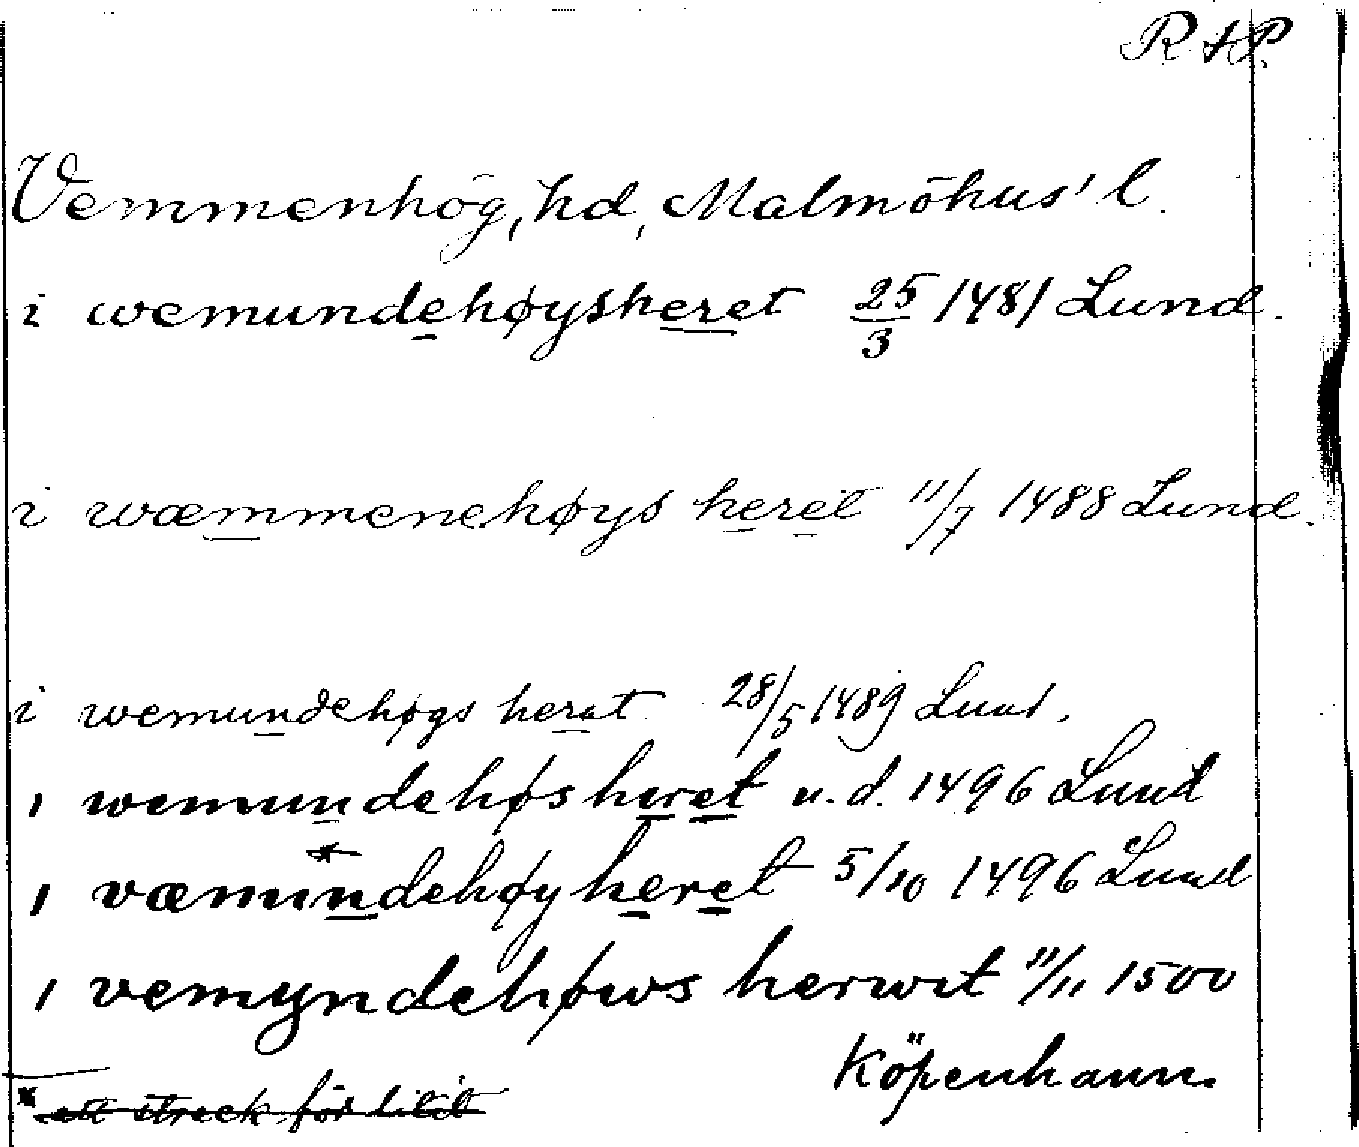 R & P.
Vemmenhög, hd, Malmöhus' l.
i wemundehøysheret 25/3 1481 Lund.
i wæmmenehøys heret 11/7 1488 Lund.
i wemundehøgs herat 28/5 1489 Lund.
i wemundehøs heret u. d. 1496 Lund
*
i væmundehøyheret 5/10 1496 Lund
i vemyndehøws herwit 11/11 1500
Köpenhamn.
* ett streck för litet